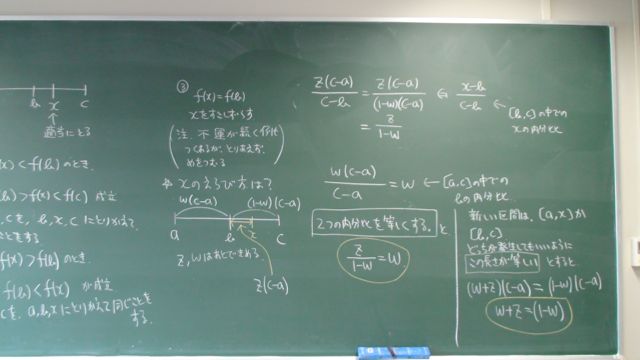 b x c
適当にとる
x) < f(b) のとき.
b) > f(x) < f(c) 成立
c を, b, x, c にとりかえて
ことをする
f(x) > f(b) のとき.
f(b) < f(x) が成立
c を, a, b, x にとりかえて同じことを
する.
③
f(x) = f(b)
x をすこしずらす
めをつむる
※ x のえらび方は?
w(c-a) (1-w)(c-a)
a b x c
z, w はあとできめる
z(c-a)
z(c-a) / c-b = z(c-a) / (1-w)(c-a) ⇐ x-b / c-b ← [b,c] の中での
x の内分比
= z / 1-w
w(c-a) / c-a = w ← [a,c] の中での
b の内分比
2つの内分比を等しくする。と
z / 1-w = w
新しい区間は, [a,x] か
[b,c]
どっちが発生してもいいように
この長さが等しい とすると
(w+z)(c-a) = (1-w)(c-a)
w+z = (1-w)